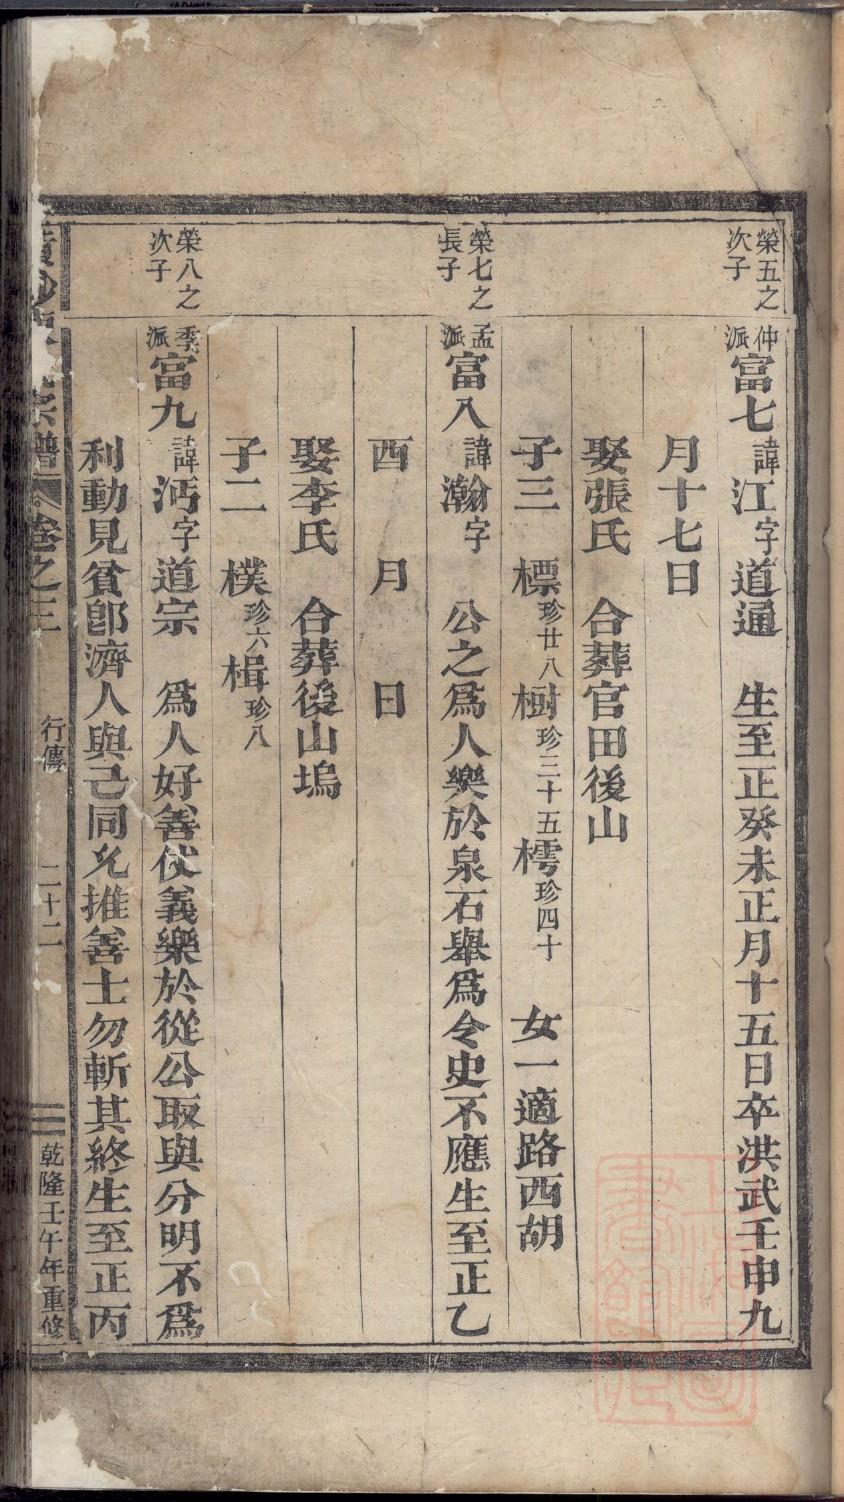 榮五之
次子
仲派富七諱江字道通　生至正癸未正月十五日卒洪武壬申九
月十七日
娶張氏　合葬官田後山
子三　標珍廿八樹珍三十五樗珍四十　女一適路西胡
榮七之
長子
孟派富八諱瀚字　公之爲人樂於泉石舉爲令史不應生至正乙
酉　月　日
娶李氏　合葬後山塢
子二　樸珍六楫珍八
榮八之
次子
季派富九諱沔字道宗　爲人好善仗義樂於從公取與分明不爲
利動見貧卽濟人與己同允推善士勿斬其終生至正丙
宗譜　卷之三　行傳　二十二　乾隆壬午年重修
上海圖書館藏